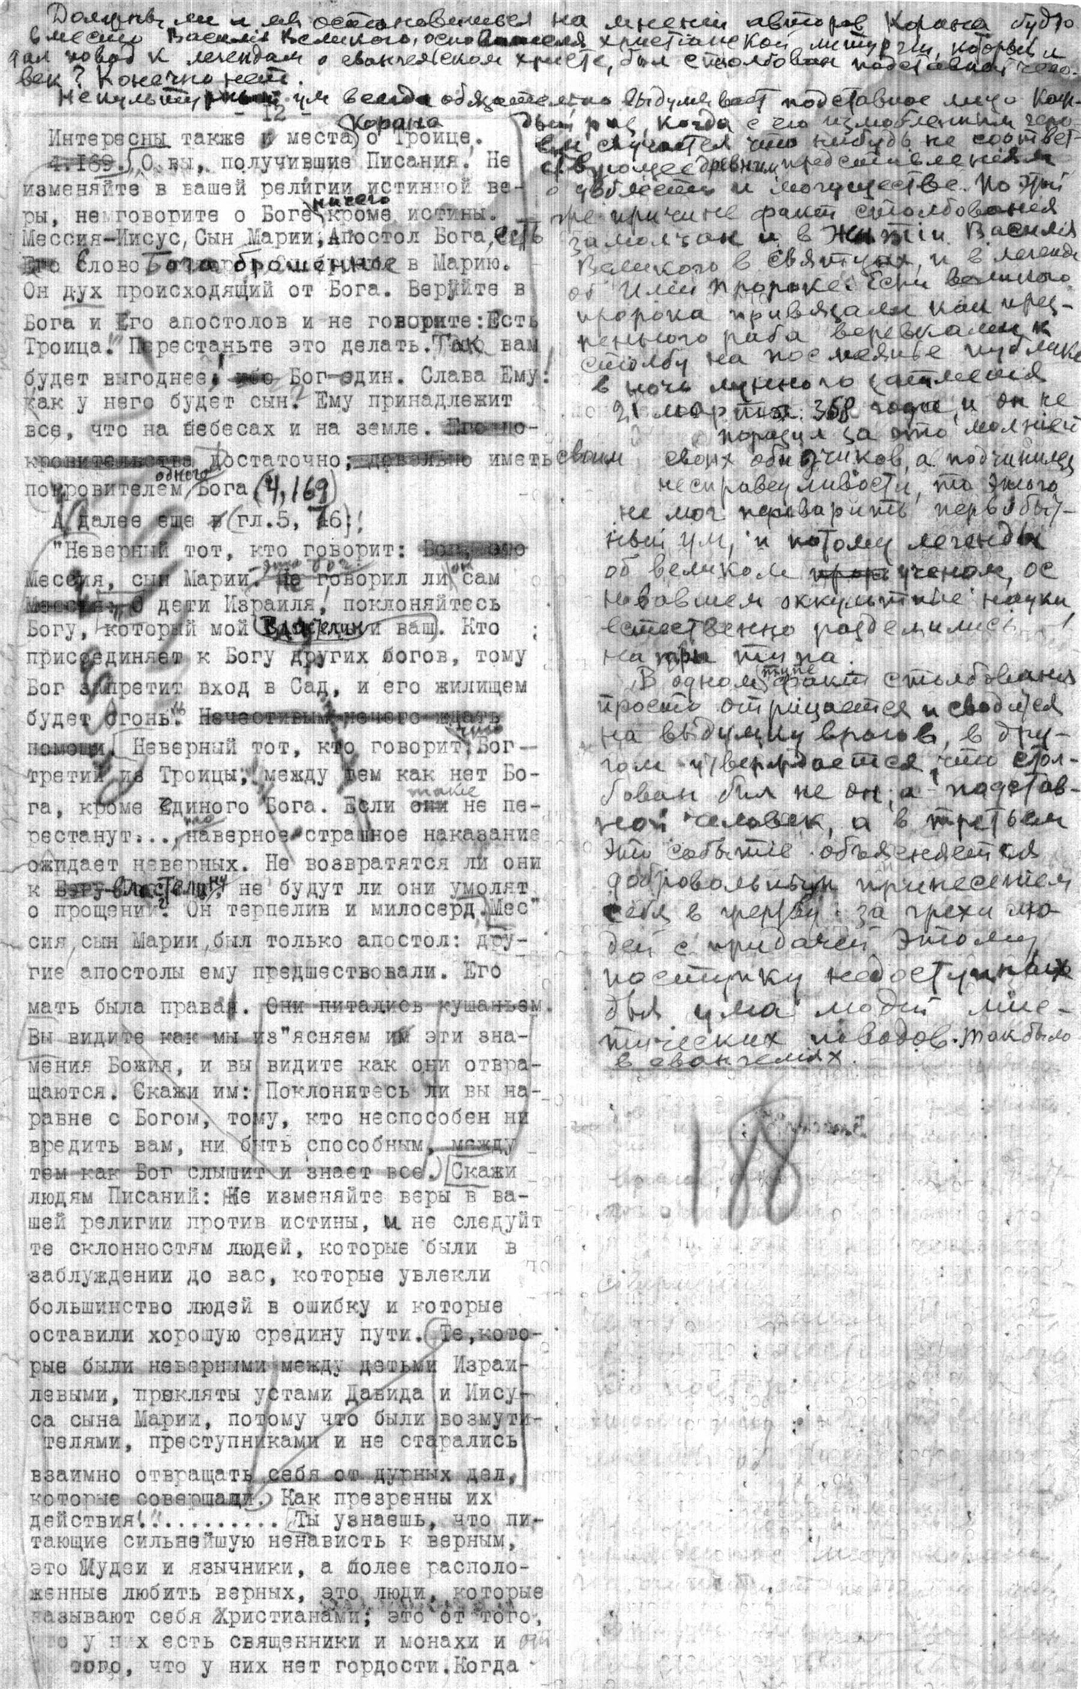 Должны ли и мы остановиться на мнении авторов Корана будто
вместо Василия Великого, основателя христианской литургии, который и
дал повод к легендам о евангельском Христе, был столбован подставной чело-
век? Конечно нет.
Некультурный ум всегда обязательно выдумывает подставное лицо каж-
дый раз, когда с его излюбленным геро-
ем случается что нибудь не соответ-
ствующее древним представлениям
о доблести и могуществе. По этой
же причине факт столбования
замолчан и в Житии Василия
Великого в святцах, и в легенде
об Илии пророке. Если великого
пророка привязали как през-
ренного раба веревками к
столбу на посмеянье публике
в ночь лунного затмения
21 марта 368 года, и он не
поразил за это молнией
своих обидчиков, а подчинился
несправедливости, то этого
не мог переварить первобыт-
ный ум, и потому легенды
об великом ученом, ос
новавшем оккультные науки,
естественно разделились
на три типа.
В одном типе факт столбования
просто отрицается и сводится
на выдумку врагов, в дру-
гом утверждается, что стол-
бован был не он, а подстав-
ной человек, а в третьем
это событие объясняется
добровольным принесением
себя в жертву за грехи лю-
дей с придачей этому
поступку недоступных
для ума людей мис-
тических поводов. Так было
в евангелиях.
188
- 12 -
Интересны также и места Корана о Троице.
4.169. О вы, получившие Писания. Не
изменяйте в вашей религии истинной ве-
ры, не говорите о Боге ничего кроме истины.
Мессия-Иисус, Сын Марии, Апостол Бога, есть
Его Слово Бога брошенное в Марию.
Он дух происходящий от Бога. Веруйте в
Бога и Его апостолов и не говорите: Есть
Троица." Перестаньте это делать. Так вам
будет выгоднее! ибо Бог-один. Слава Ему!
как у него будет сын? Ему принадлежит
все, что на Небесах и на земле. Его по-
кровительства Достаточно; довольно иметь своим
покровителем одного Бога (4,169)
А далее еще (гл.5, 76):
"Неверный тот, кто говорит:
Мессия, сын Марии. это бог. Не говорил ли он сам
Мессия: О дети Израиля, поклоняйтесь
Богу, который мой Властелин и ваш. Кто
присоединяет к Богу других богов, тому
Бог запретит вход в Сад, и его жилищем
будет огонь." Нечестивым нечего ждать
помощи. Неверный тот, кто говорит что Бог-
третий из Троицы, между тем как нет Бо-
га, кроме Единого Бога. Если они такие не пе-
рестанут..., то наверное страшное наказание
ожидает неверных. Не возвратятся ли они
к Богу властелину, не будут ли они умолят
о прощении? Он терпелив и милосерд. Мес"
сия, сын Марии, был только апостол: дру-
гие апостолы ему предшествовали. Его
мать была правая. Они питались кушаньем.
Вы видите как мы из"ясняем им эти зна-
мения Божия, и вы видите как они отвра-
щаются. Скажи им: Поклонитесь ли вы на-
равне с Богом, тому, кто неспособен ни
вредить вам, ни быть способным, между
тем как Бог слышит и знает все. Скажи
людям Писаний: Не изменяйте веры в ва-
шей религии против истины, и не следуйт
те склонностям людей, которые были в
заблуждении до вас, которые увлекли
большинство людей в ошибку и которые
оставили хорошую средину пути. Те, кото-
рые были неверными между детьми Израи-
левыми, прекляты устами Давида и Иису-
са сына Марии, потому что были возмути-
телями, преступниками и не старались
взаимно отвращать себя от дурных дел,
которые совершали. Как презренны их
действия!........... Ты узнаешь, что пи-
тающие сильнейшую ненависть к верным,
это Иудеи и язычники, а более располо-
женные любить верных, это люди, которые
называют себя Христианами; это от того,
что у них есть священники и монахи и от
того, что у них нет гордости. Когда